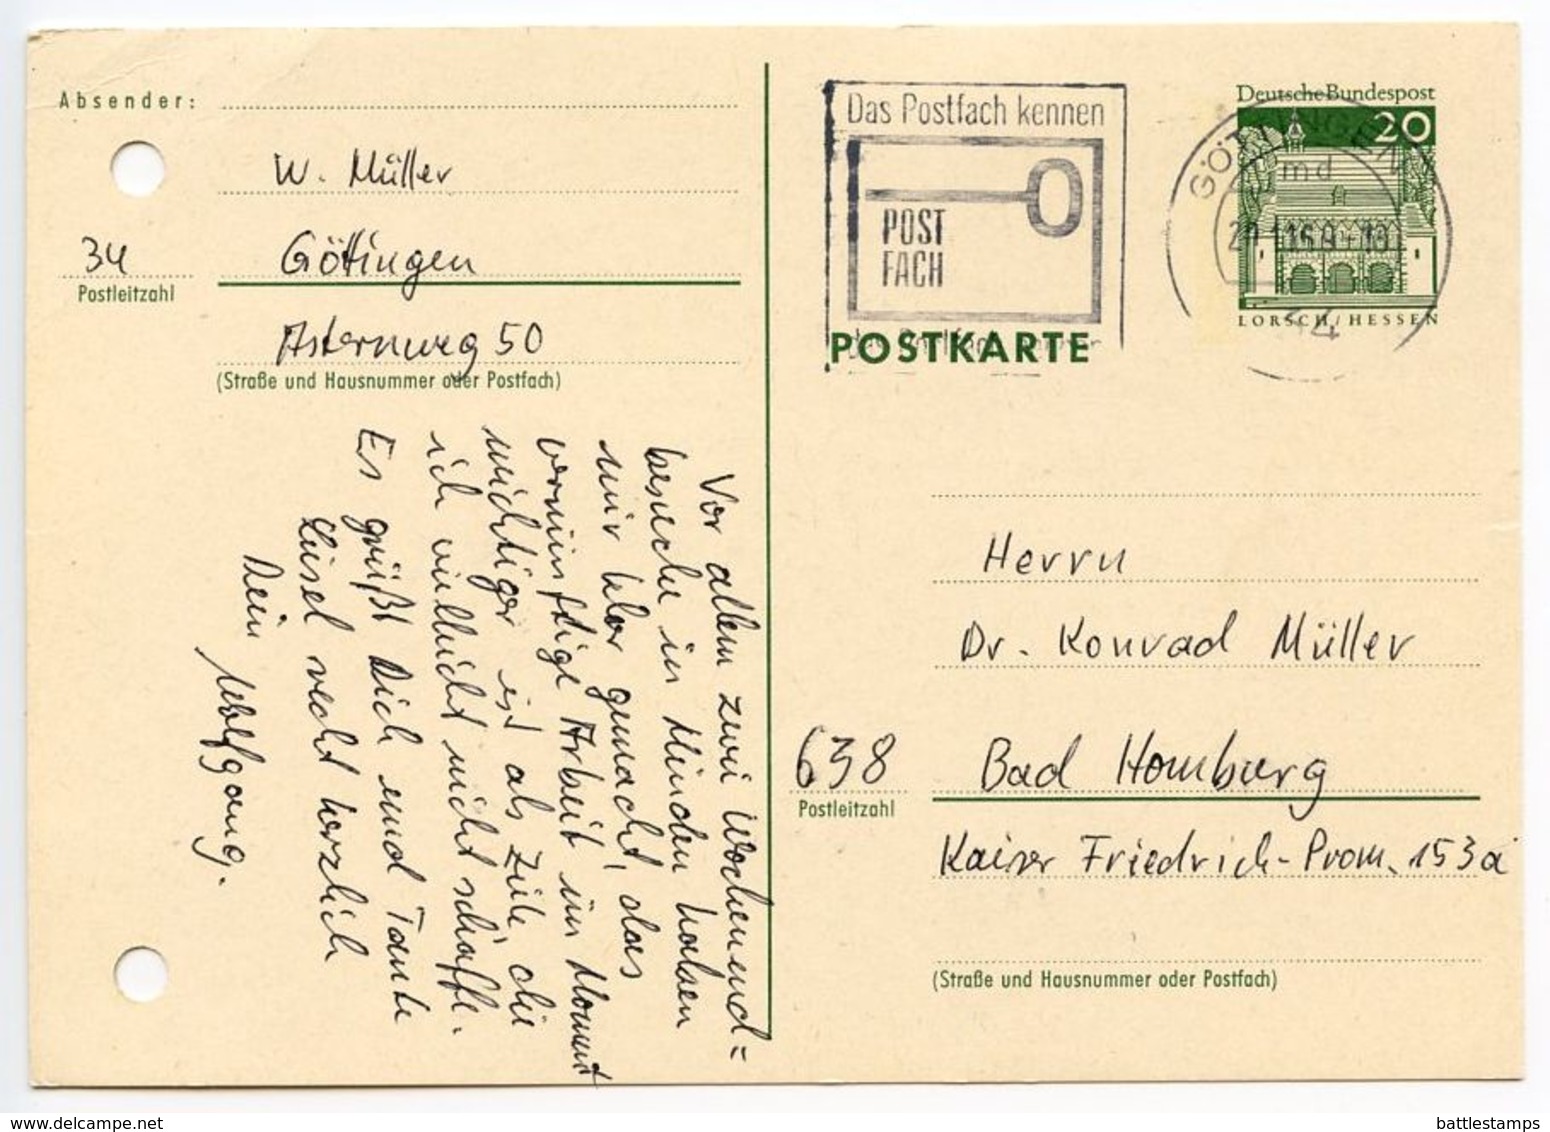 Absender:
W. Müller
34
Göttingen
Postleitzahl
Asternweg 50
(Straße und Hausnummer oder Postfach)
Vor allem zwei Wochenend=
besuche in Minden haben
mir klar gemacht, das
vernünftige Arbeit im Moment
wichtiger ist als Ziele, die
ich vielleicht nicht schaffe.
Es grüßt Dich und Tante
Liesel recht herzlich
Dein
Wolfgang.
Das Postfach kennen
POST
FACH
POSTKARTE
Deutsche Bundespost
20
GÖTTINGEN
md
LORSCH/HESSEN
Herrn
Dr. Konrad Müller
638
Bad Homburg
Postleitzahl
Kaiser Friedrich-Prom. 153a
(Straße und Hausnummer oder Postfach)
www.delcampe.net
battlestamps